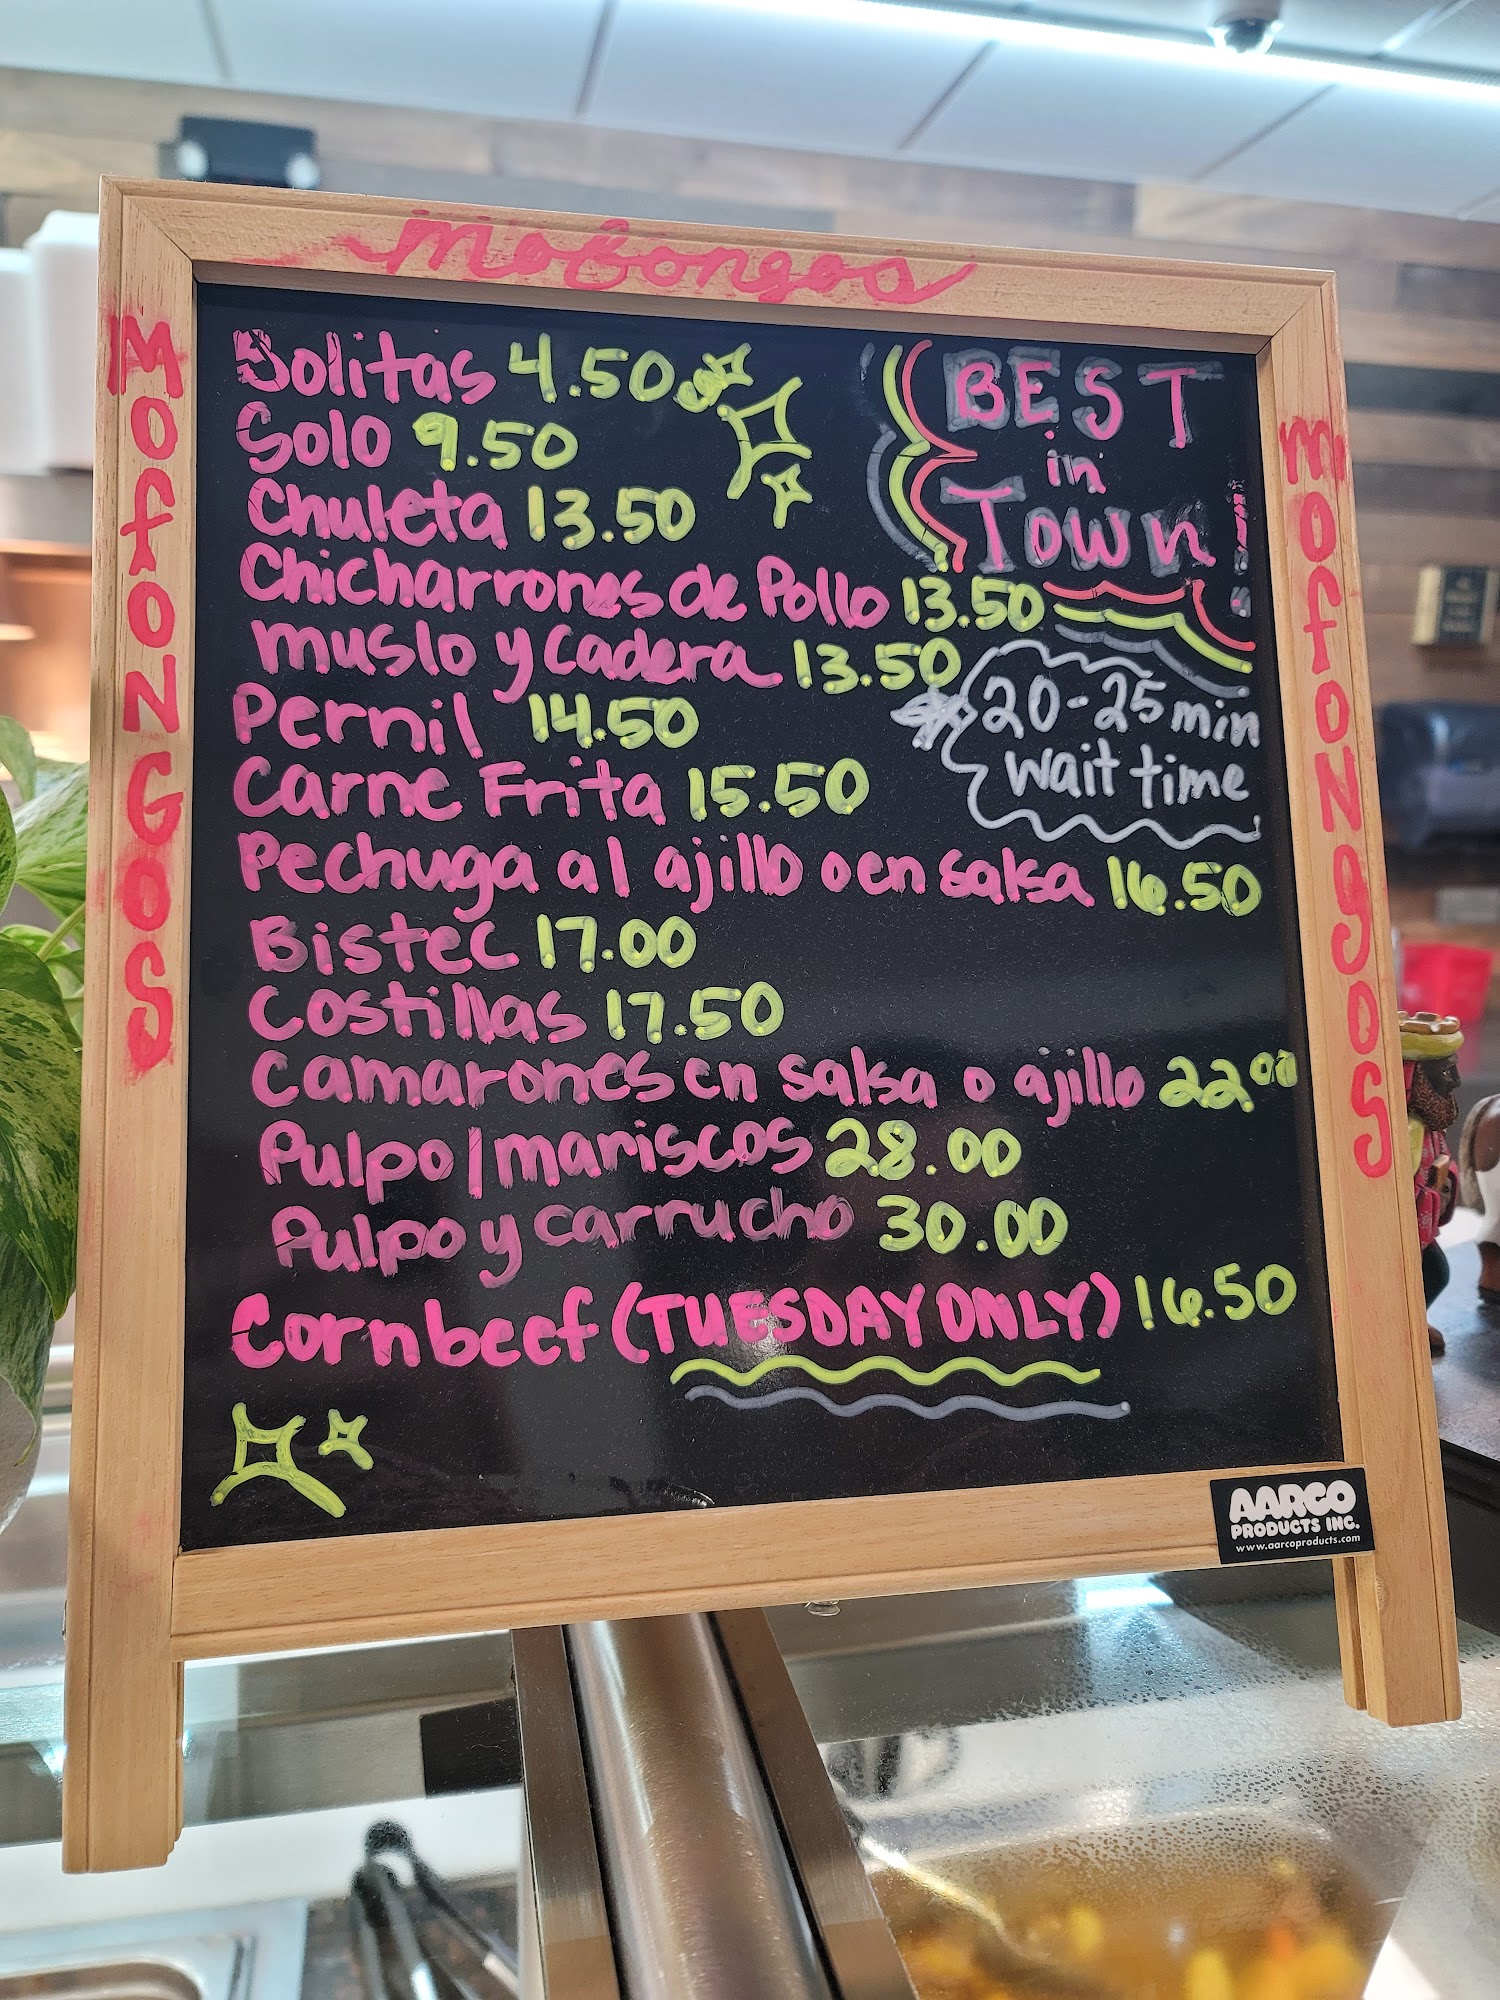 Mofongos
Mofongos
Mofongos
Bolitas 4.50
Solo 9.50
Chuleta 13.50
Chicharrones de Pollo 13.50
muslo y cadera 13.50
Pernil 14.50
Carne Frita 15.50
Pechuga al ajillo o en salsa 16.50
Bistec 17.00
Costillas 17.50
Camarones en salsa o ajillo 22.00
Pulpo/mariscos 28.00
Pulpo y carrucho 30.00
Cornbeef (TUESDAY ONLY) 16.50
BEST
in
Town!
20-25 min
wait time
AARCO
PRODUCTS INC.
www.aarcoproducts.com